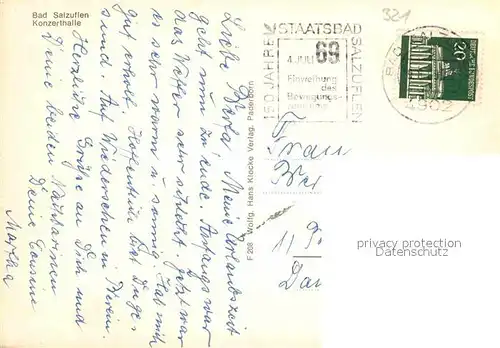 Bad Salzuflen
Konzerthalle
Liebe Berta! Meine Urlaubszeit
geht nun zu ende. Anfangs war
das Wetter sehr schlecht. Jetzt war
es sehr warm u. sonnig. Hab mich
gut erholt. Hoffentlich bist Du ge-
sund. Auf Wiedersehen in
Herzliche Grüße an Dich und
Deine beiden
Deine Cousine
Martha
F 208 Wolfg. Hans Klocke Verlag, Paderborn
150 JAHRE STAATSBAD SALZUFLEN
4. JULI 69
Einweihung
des
Bewegungs-
321
20
Frau
1/
privacy protection
Datenschutz